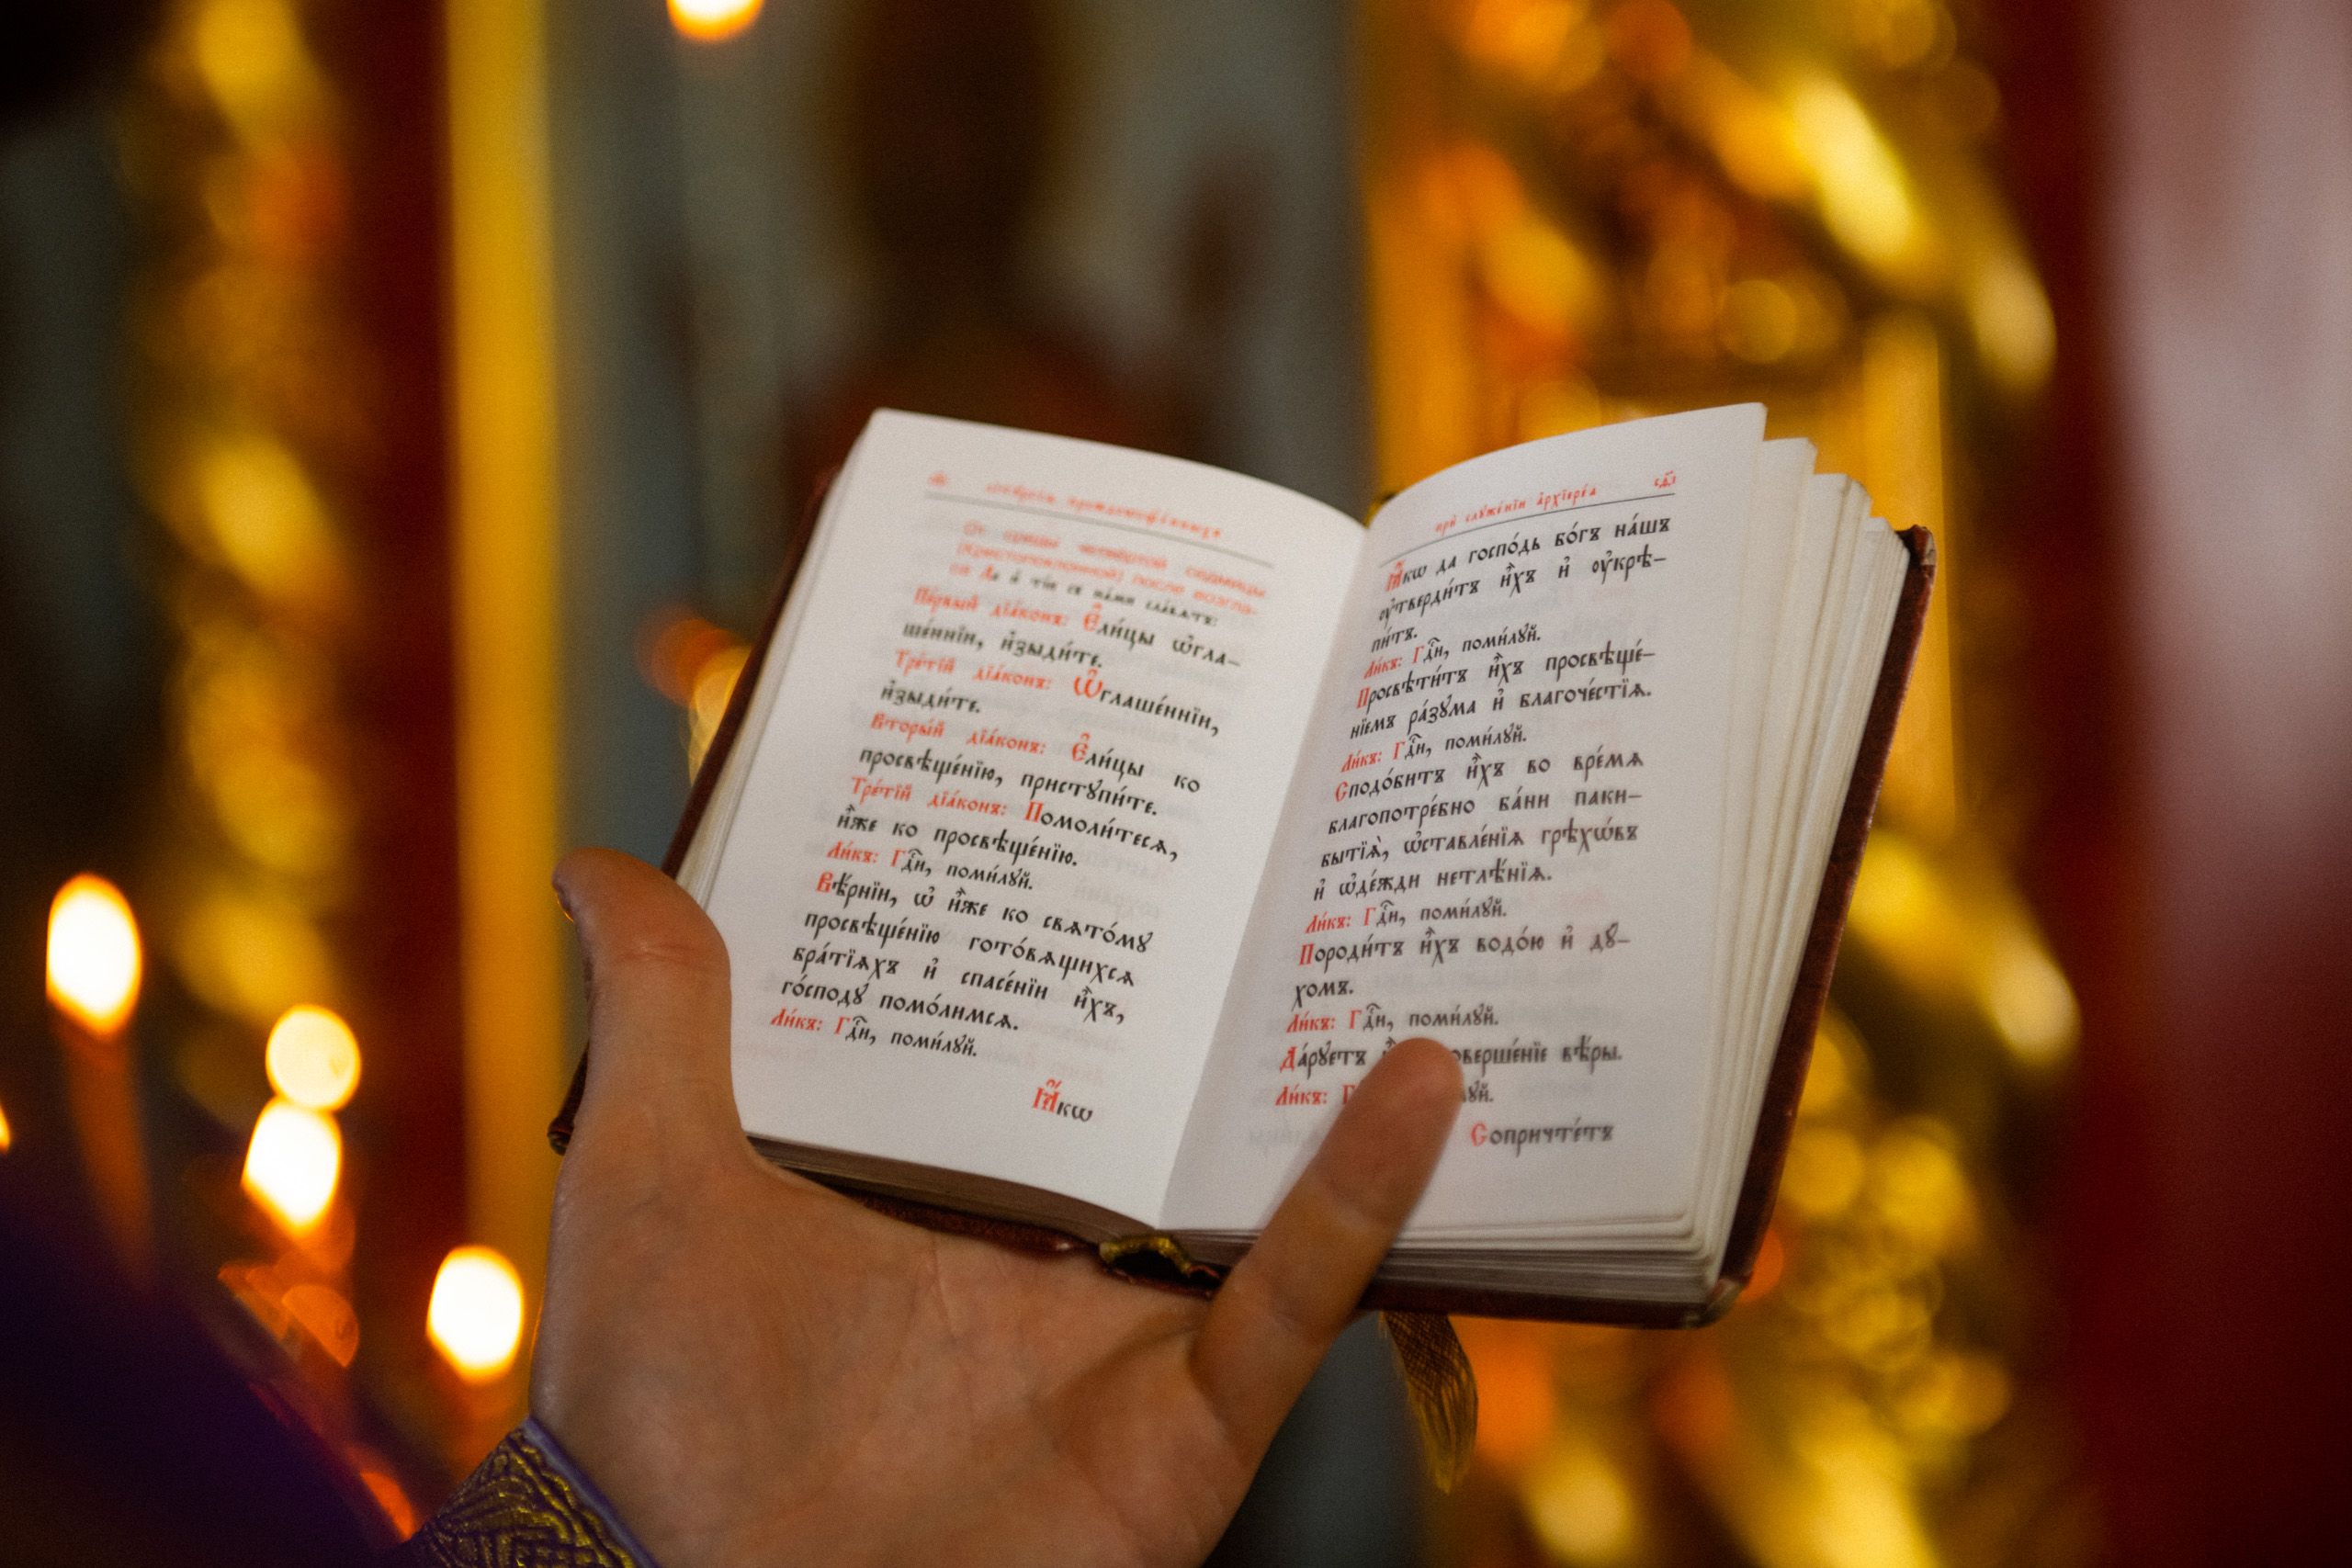 преждеосвѧщенныхъ
От среды четвертой седмицы
(Крестопоклонной) после возгла-
са Да и ти́и съ на́ми сла́вѧтъ:
Пе́рвый дїа́конъ: Є҆ли́цы ѡ҆гла-
ше́ннїи, и҆зыди́те.
Тре́тїй дїа́конъ: Ѡ҆глаше́ннїи,
и҆зыди́те.
Вторы́й дїа́конъ: Є҆ли́цы ко
просвѣще́нїю, пристꙋпи́те.
Тре́тїй дїа́конъ: Помоли́тесѧ,
и҆̀же ко просвѣще́нїю.
Ли́къ: Гдⷭ҇и, поми́лꙋй.
Вѣ́рнїи, ѡ҆ и҆̀же ко свѧто́мꙋ
просвѣще́нїю гото́вѧщихсѧ
бра́тїѧхъ и҆ спасе́нїи и҆́хъ,
го́сподꙋ помо́лимсѧ.
Ли́къ: Гдⷭ҇и, поми́лꙋй.
Ꙗ҆́кѡ
прѝ слꙋже́нїи а҆рхїере́а
Ꙗ҆́кѡ да госпо́дь бо́гъ на́шъ
ᲂу҆тверди́тъ и҆̀хъ и҆ ᲂу҆крѣ-
пи́тъ.
Ли́къ: Гдⷭ҇и, поми́лꙋй.
Просвѣти́тъ и҆̀хъ просвѣще́-
нїемъ ра́зꙋма и҆ благоче́стїѧ.
Ли́къ: Гдⷭ҇и, поми́лꙋй.
Сподо́битъ и҆̀хъ во вре́мѧ
благопотре́бно ба́ни паки-
бытїѧ̀, ѡ҆ставле́нїѧ грѣхѡ́въ
и҆ ѡ҆де́жди нетлѣ́нїѧ.
Ли́къ: Гдⷭ҇и, поми́лꙋй.
Породи́тъ и҆̀хъ водо́ю и҆ дꙋ-
хомъ.
Ли́къ: Гдⷭ҇и, поми́лꙋй.
Да́рꙋетъ оверше́нїе вѣ́ры.
Ли́къ: Г лꙋй.
Сопричте́тъ